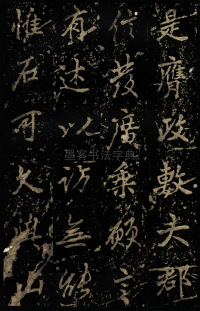 是膺政敷夫郡
信發廣乘願言
有述以訪無能
惟石可久與山
墨客书法字典